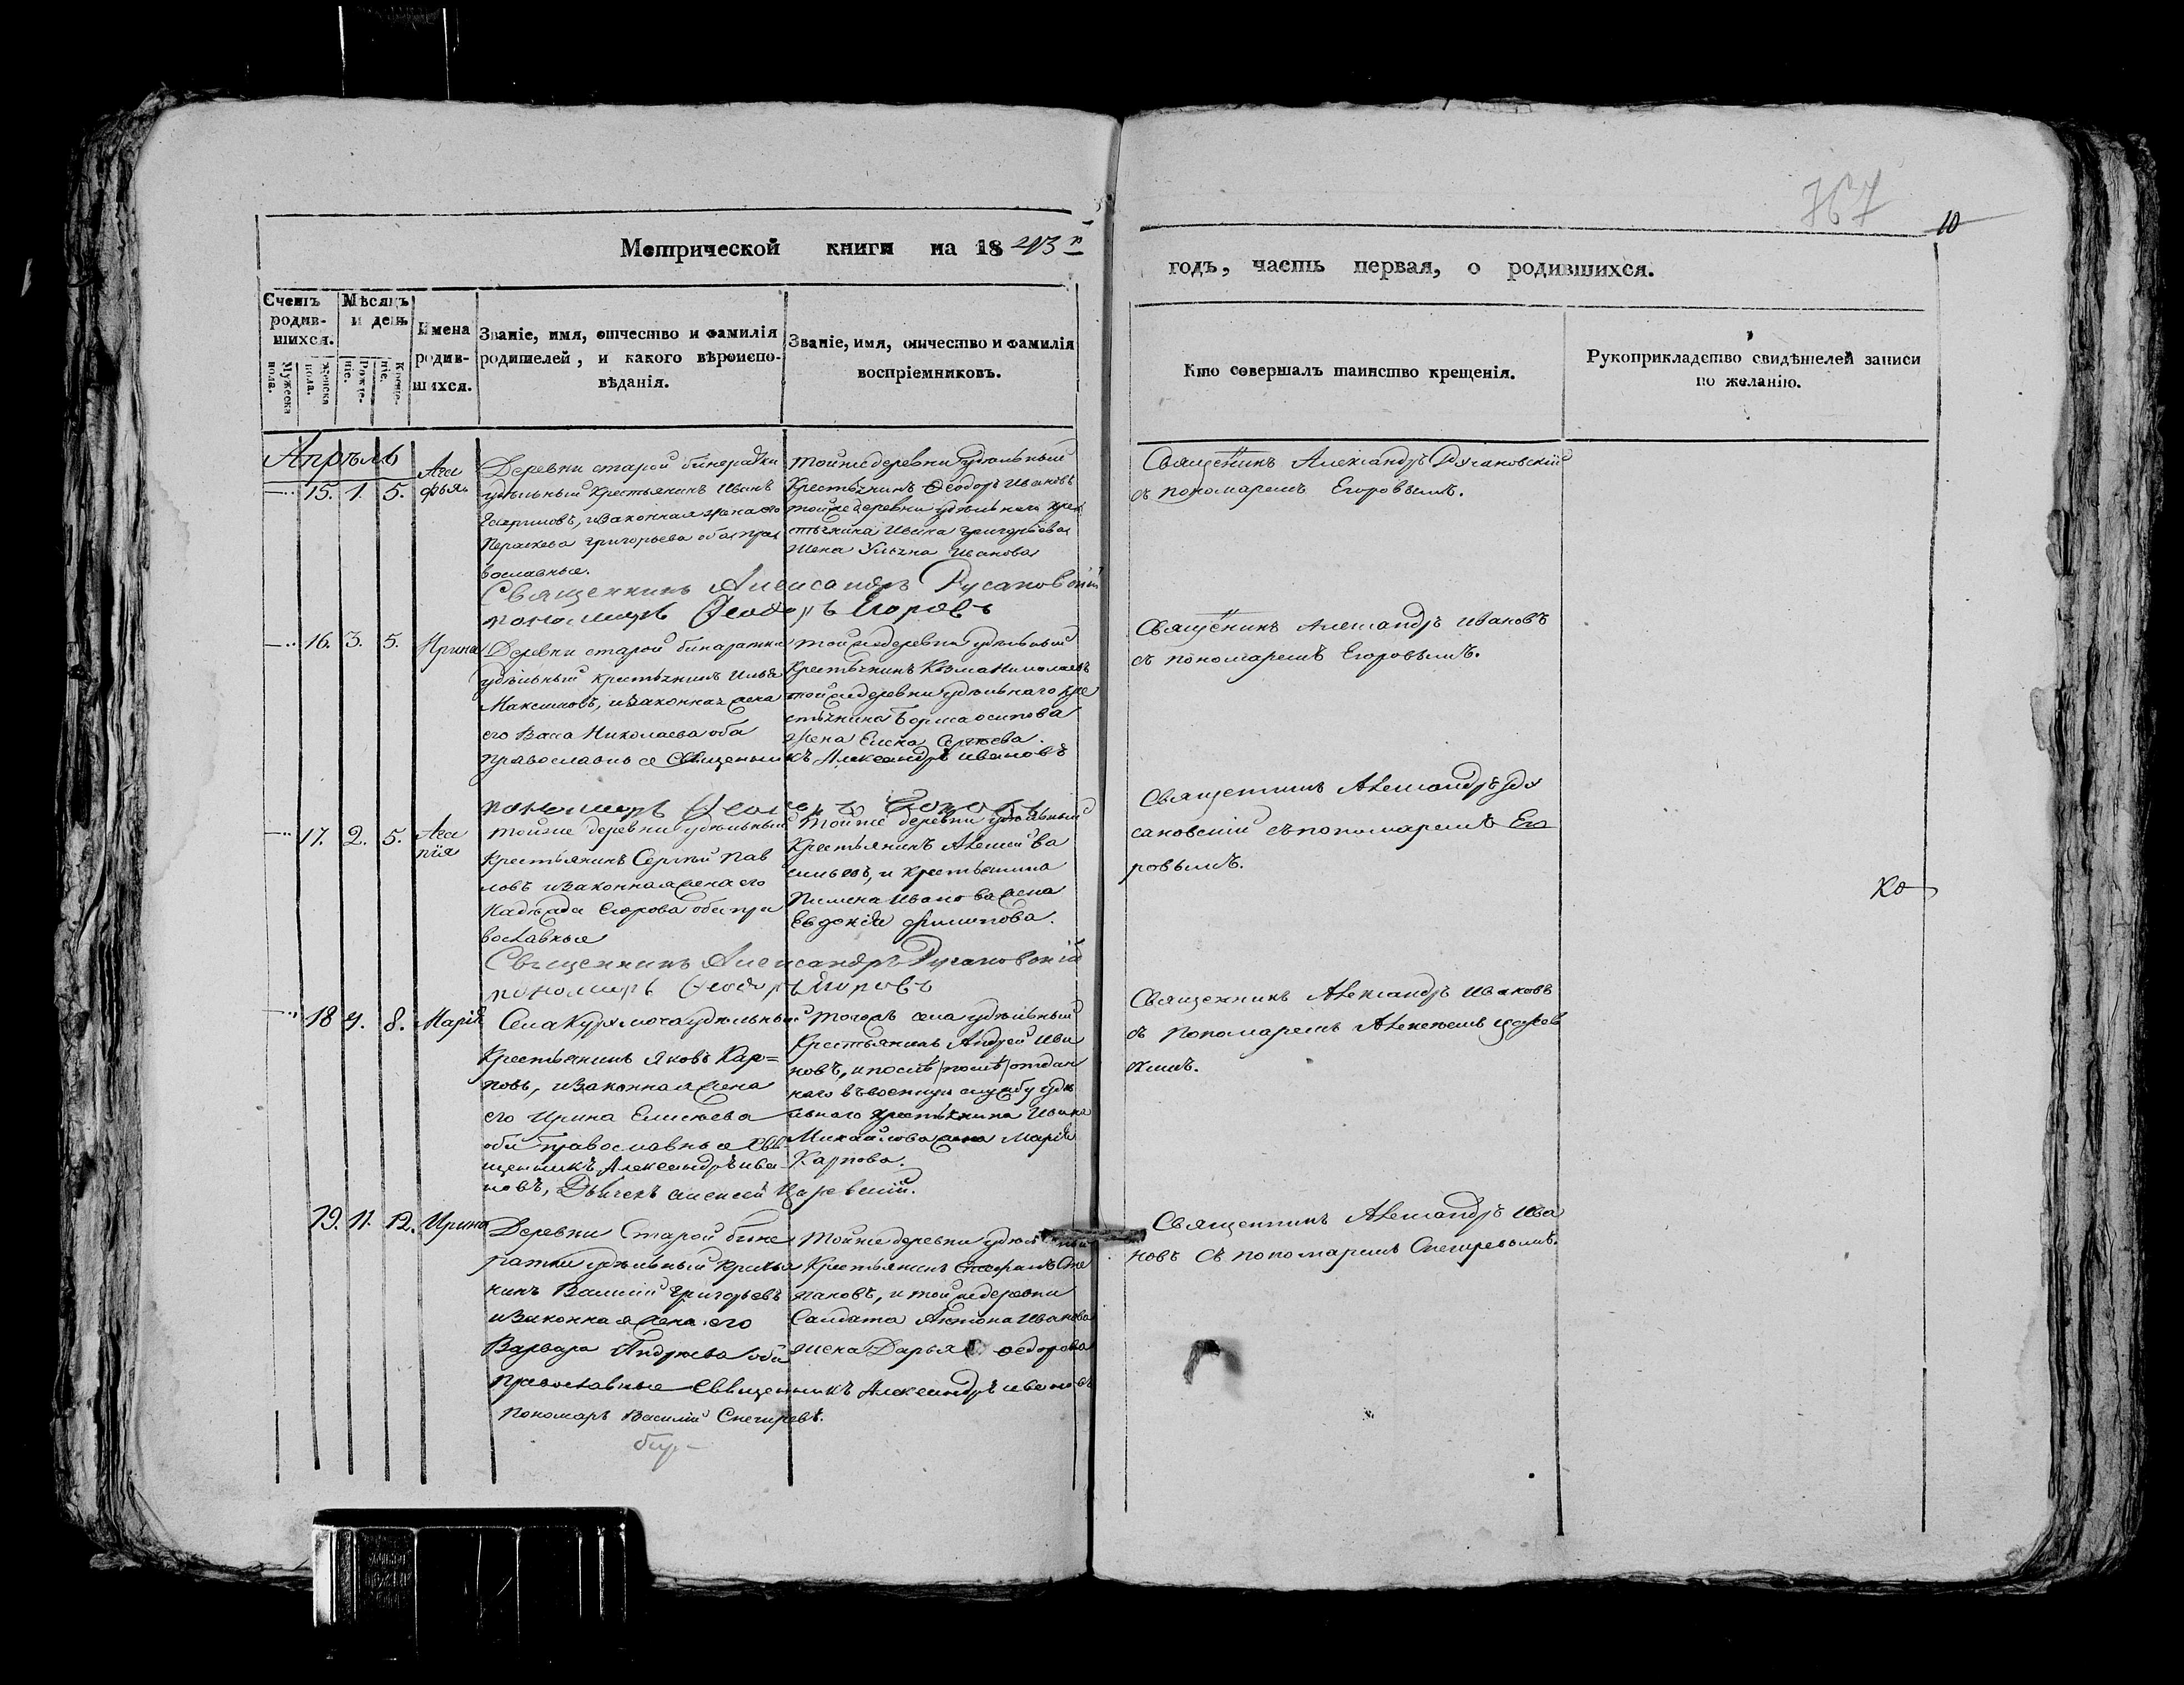 767
10
Метрической книги на 1843й
годъ, часть первая, о родившихся.
Счетъ родив-шихся.
Мужеска пола.
Женска пола.
Мѣсяцъ и день
Рожде-ніе.
Креще-ніе.
Имена родив-шихся.
Званіе, имя, отчество и фамилія
родителей, и какого вѣроиспо-
вѣданія.
Званіе, имя, отчество и фамилія
воспріемниковъ.
Кто совершалъ таинство крещенія.
Рукоприкладство свидѣтелей записи
по желанію.
Апрѣль
15. 1. 5.
Ага
фья
Деревни старой бинарадки
удѣльный крестьянинъ Иванъ
Гавриловъ, изаконная жена его
Параскева григорьева оба пра
вославные.
Священникъ Александръ Русановскій
пономарь Ѳеодоръ Егоровъ
тойже деревни удѣльный
крестьянинъ Ѳеодоръ Ивановъ
тойже деревни удѣльнаго крес
тьянина Ивана григорьева
жена Ульяна Иванова
Священникъ Александръ Русановскій
съ пономаремъ Егоровымъ.
16. 3. 5. Ирина
Деревни старой бинаратки
удѣльный крестьянинъ Илья
Максимовъ, изаконная жена
его Васа Николаева оба
православные Священникъ Александръ ивановъ
пономарь Ѳеодоръ Егоровъ
тойже деревни удѣльный
Крестьянинъ Козма Николаевъ
тойже деревни удѣльнаго кре
стьянина Бориса осипова
жена Елена Сергѣева.
Священникъ Александръ Ивановъ
съ пономаремъ Егоровымъ.
17. 2. 5.
Ага
пія
тойже деревни удѣльный
крестьянинъ Сергѣй Пав
ловъ изаконная жена его
Надежда Егорова оба пра
вославные
Священникъ Александръ Русановскій
пономарь Ѳеодоръ Егоровъ
Тойже деревни удѣльный
Крестьянинъ Алексѣй Ва
сильевъ, и крестьянина
Пимена Иванова жена
Евдокія филипова.
Священникъ Александръ Ру
сановскій съ пономаремъ Его
ровымъ.
Ко
18 4. 8. Марія
Села Курумоча удѣльный
Крестьянинъ Яковъ Кар=
повъ, изаконная жена
его Ирина Елисѣева
оба православные Свя
щенникъ Александръ ива
новъ, Дьячекъ алексѣй Царевскій.
Тогожъ села удѣльный
Крестьянинъ Андрей Ива
новъ, и послѣ /послѣ/ отдан
наго въ военную службу удѣ
льнаго крестьянина Ивана
Михайлова жена Марія
Карпова.
Священникъ Александръ Ивановъ
съ Пономаремъ Алексѣемъ царев
скимъ.
19. 11. 12. Ирина
Деревни Старой бина
ратки удѣльный крестья
нинъ Василій Григорьевъ
изаконная жена его
Варвара Андреева оба
православные Священникъ Александръ ивановъ
Пономарь Василій Снегиревъ.
Тойже деревни удѣльный
Крестьянинъ Степанъ Сте
пановъ, и тойже деревни
Салдата Антона Иванова
жена Дарья Ѳедорова
Священникъ Александръ Ива
новъ съ пономаремъ Снегиревымъ.